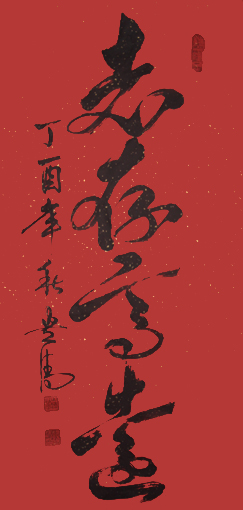 志存高遠
丁酉年秋